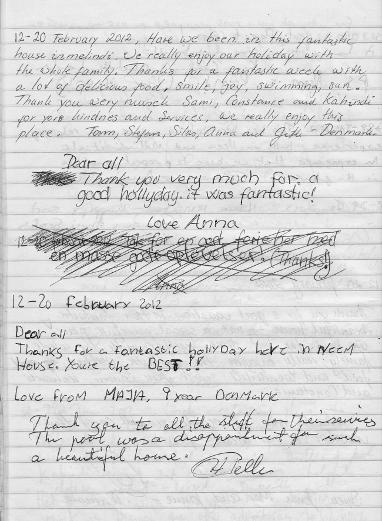 12-20 February 2012, Have we been in this fantastic
house in melindi. We really enjoy our holiday with
the whole family. Thanks for a fantastic week with
a lot of delicious food, smile, joy, swimming, sun.
Thank you very munch Sami, Constance and Kahindi
for yore kindnes and Services, we really enjoy this
place. Tom, Stefan, Silas, Anna and Gitte - Denmark
Dear all
Thank you very much for a
good hollyday. it was fantastic!
Love Anna
Tak for en god ferie her med
en masse gode oplevelser! (Thanks!)
Anna
12-20 February 2012
Dear all
Thanks for a fantastic hollyDay here in Neem
House. Youre the BEST!!
Love from MAJA, 9 year Denmark
Thank you to all the staff for their services
The pool was a disappointment for such
a beautiful home.